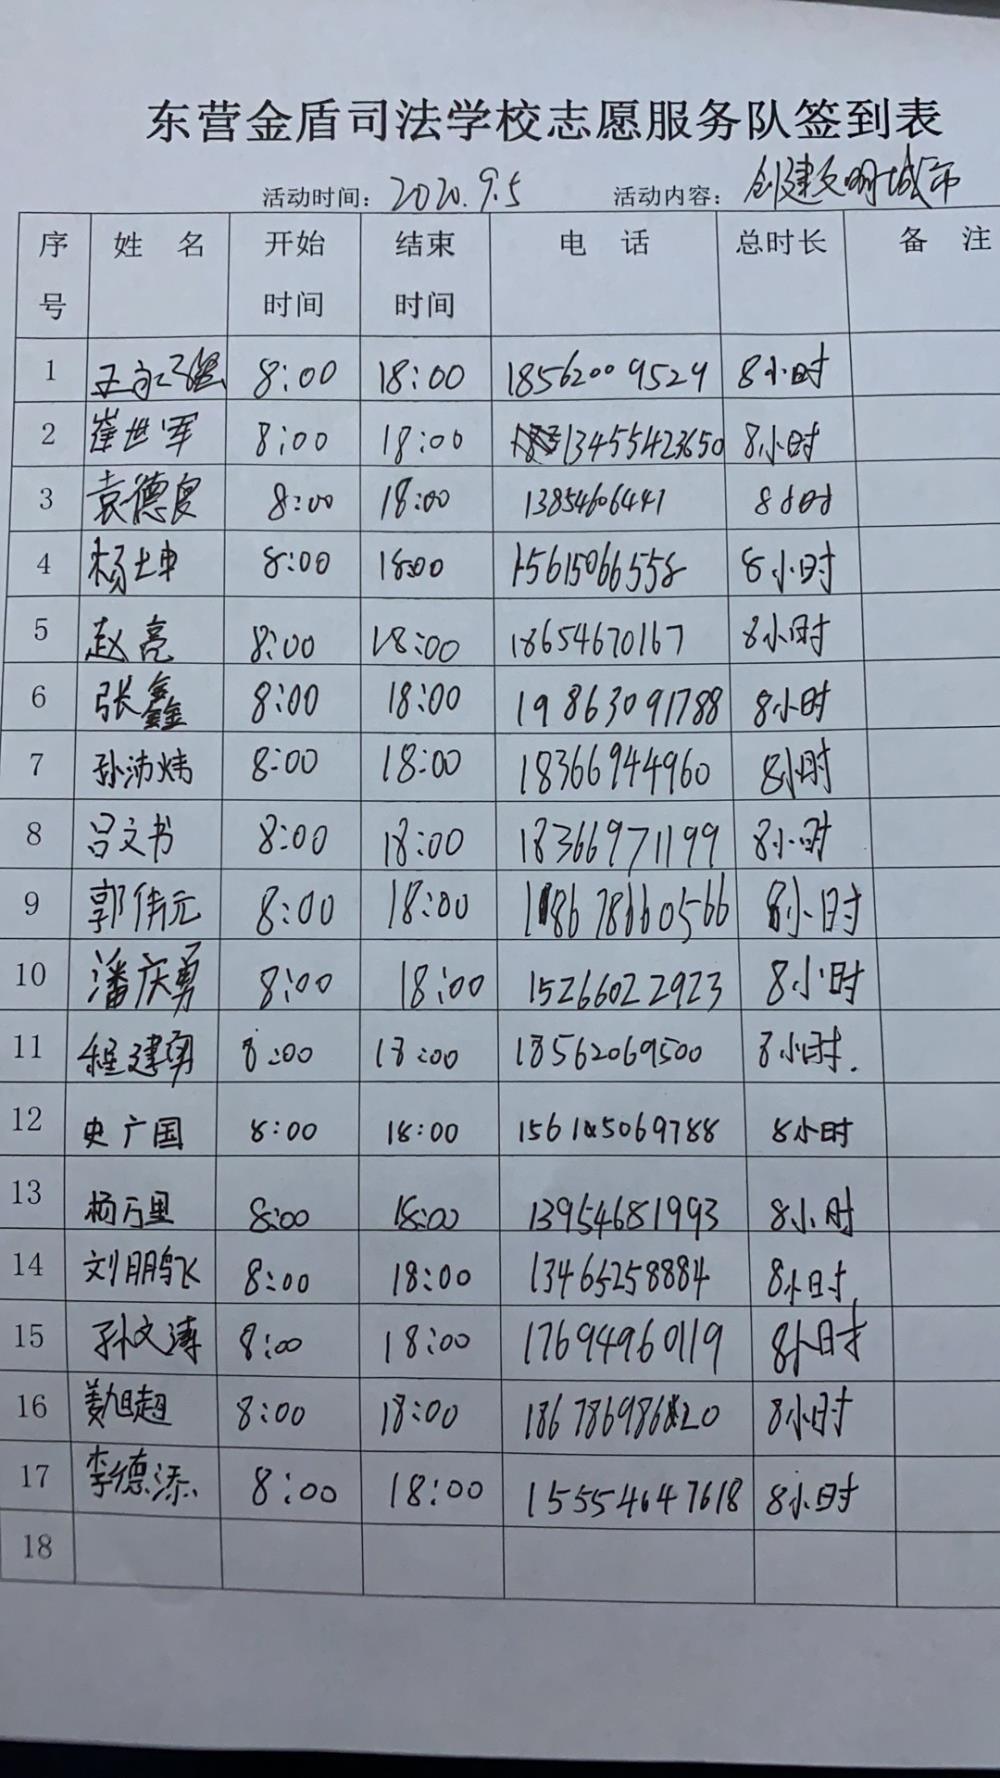 东营金盾司法学校志愿服务队签到表
活动时间：2020.9.5 活动内容：创建文明城市
序号 姓 名 开始时间 结束时间 电 话 总时长 备 注
1 王永强 8:00 18:00 18562009529 8小时
2 崔世军 8:00 18:00 13455423650 8小时
3 袁德良 8:00 18:00 13854606441 8小时
4 杨士申 8:00 18:00 15615066558 8小时
5 赵亮 8:00 18:00 18654670167 8小时
6 张鑫 8:00 18:00 19863091788 8小时
7 孙沛炜 8:00 18:00 18366944960 8小时
8 吕文书 8:00 18:00 18366971199 8小时
9 郭伟元 8:00 18:00 8小时
10 潘庆勇 8:00 18:00 15266022923 8小时
11 程建勇 8:00 18:00 18562069500 8小时.
12 史广国 8:00 18:00 15615069788 8小时
13 杨万里 8:00 18:00 13954681993 8小时
14 刘鹏飞 8:00 18:00 13465258884 8小时
15 孙文涛 8:00 18:00 17694960119 8小时
16 姜旭超 8:00 18:00 8小时
17 李德添 8:00 18:00 15554647618 8小时
18